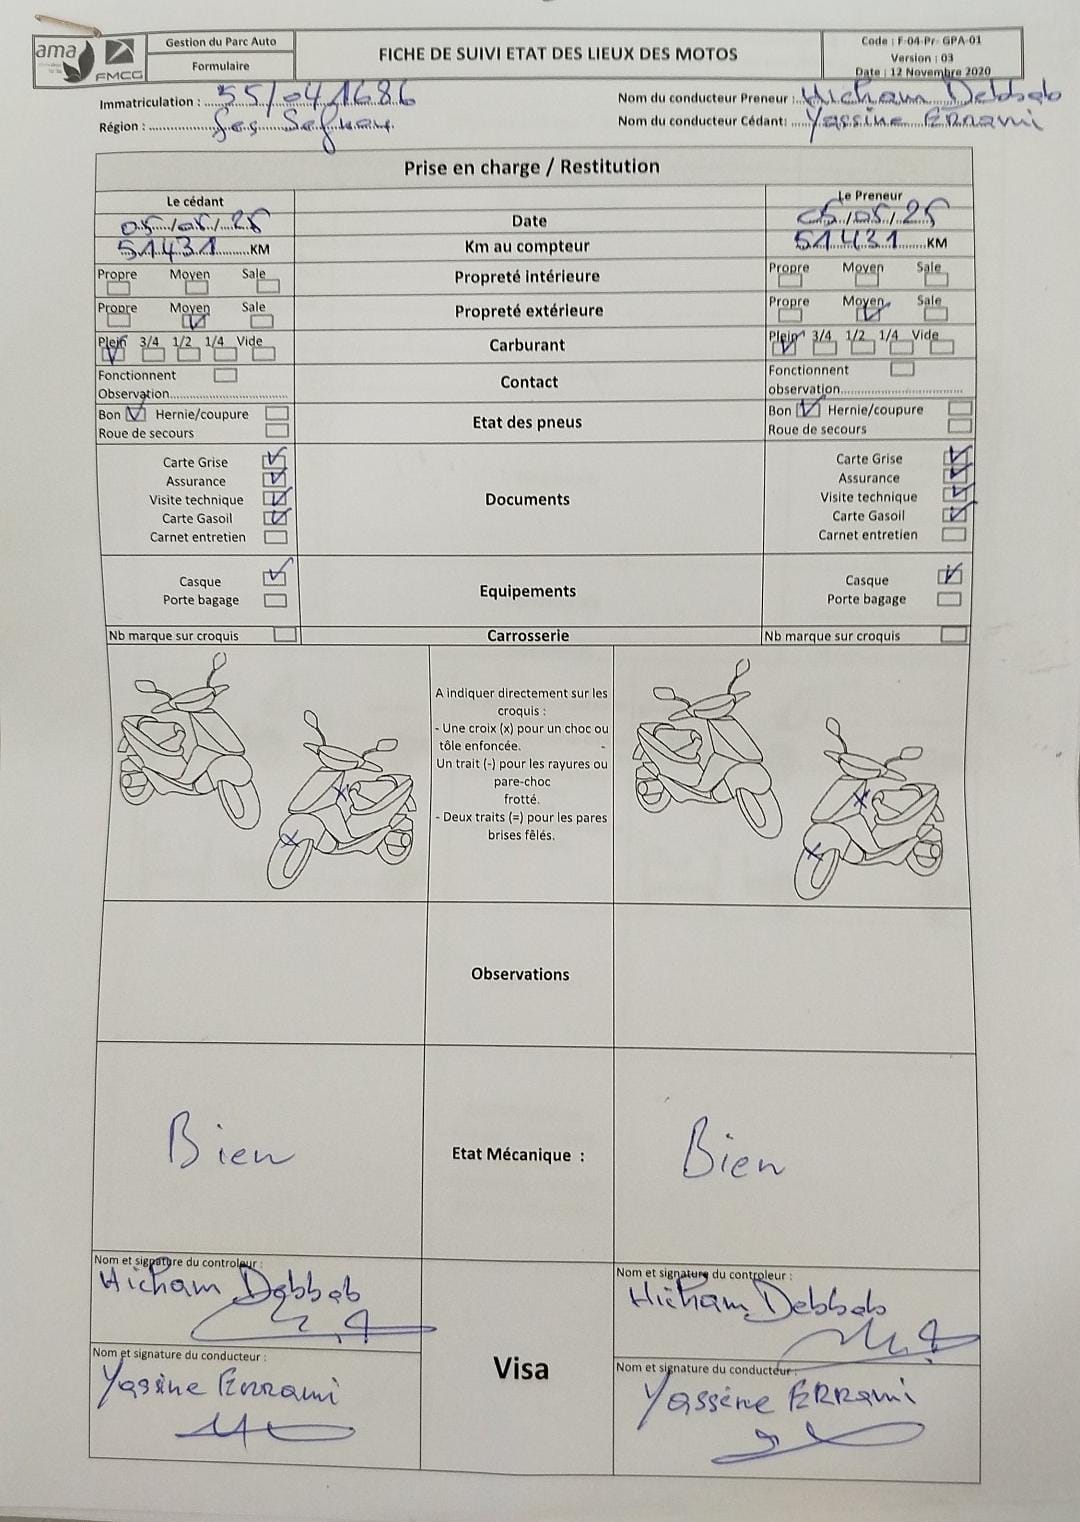 ama
FMCG
Gestion du Parc Auto
Formulaire
FICHE DE SUIVI ETAT DES LIEUX DES MOTOS
Code : F-04-Pr- GPA-01
Version : 03
Date : 12 Novembre 2020
Immatriculation : 55/04 1686
Nom du conducteur Preneur : Hicham Debbab
Région : Fes Sefrou
Nom du conducteur Cédant: Yassine ERRami
Prise en charge / Restitution
Le cédant
Le Preneur
05/05/25 Date 05/05/25
51431 KM Km au compteur 51431 KM
Propre Moyen Sale Propreté intérieure Propre Moyen Sale
Propre Moyen Sale Propreté extérieure Propre Moyen Sale
Plein 3/4 1/2 1/4 Vide Carburant Plein 3/4 1/2 1/4 Vide
Fonctionnent Contact Fonctionnent
Observation observation
Bon Hernie/coupure Etat des pneus Bon Hernie/coupure
Roue de secours Roue de secours
Carte Grise Carte Grise
Assurance Assurance
Visite technique Documents Visite technique
Carte Gasoil Carte Gasoil
Carnet entretien Carnet entretien
Casque Equipements Casque
Porte bagage Porte bagage
Nb marque sur croquis Carrosserie Nb marque sur croquis
A indiquer directement sur les
croquis :
- Une croix (x) pour un choc ou
tôle enfoncée. -
Un trait (-) pour les rayures ou
pare-choc
frotté.
- Deux traits (=) pour les pares
brises fêlés.
Observations
Bien Etat Mécanique : Bien
Nom et signature du controleur :
Hicham Debbab
Nom et signature du controleur :
Hicham Debbab
Visa
Nom et signature du conducteur :
Yassine Errami
Nom et signature du conducteur :
Yassine ERRami